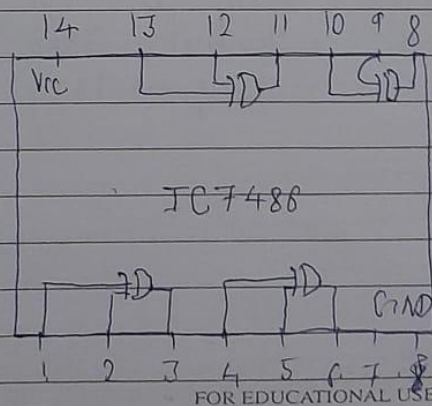 14 13 12 11 10 9 8
Vcc
IC7486
GND
1 2 3 4 5 6 7
FOR EDUCATIONAL USE